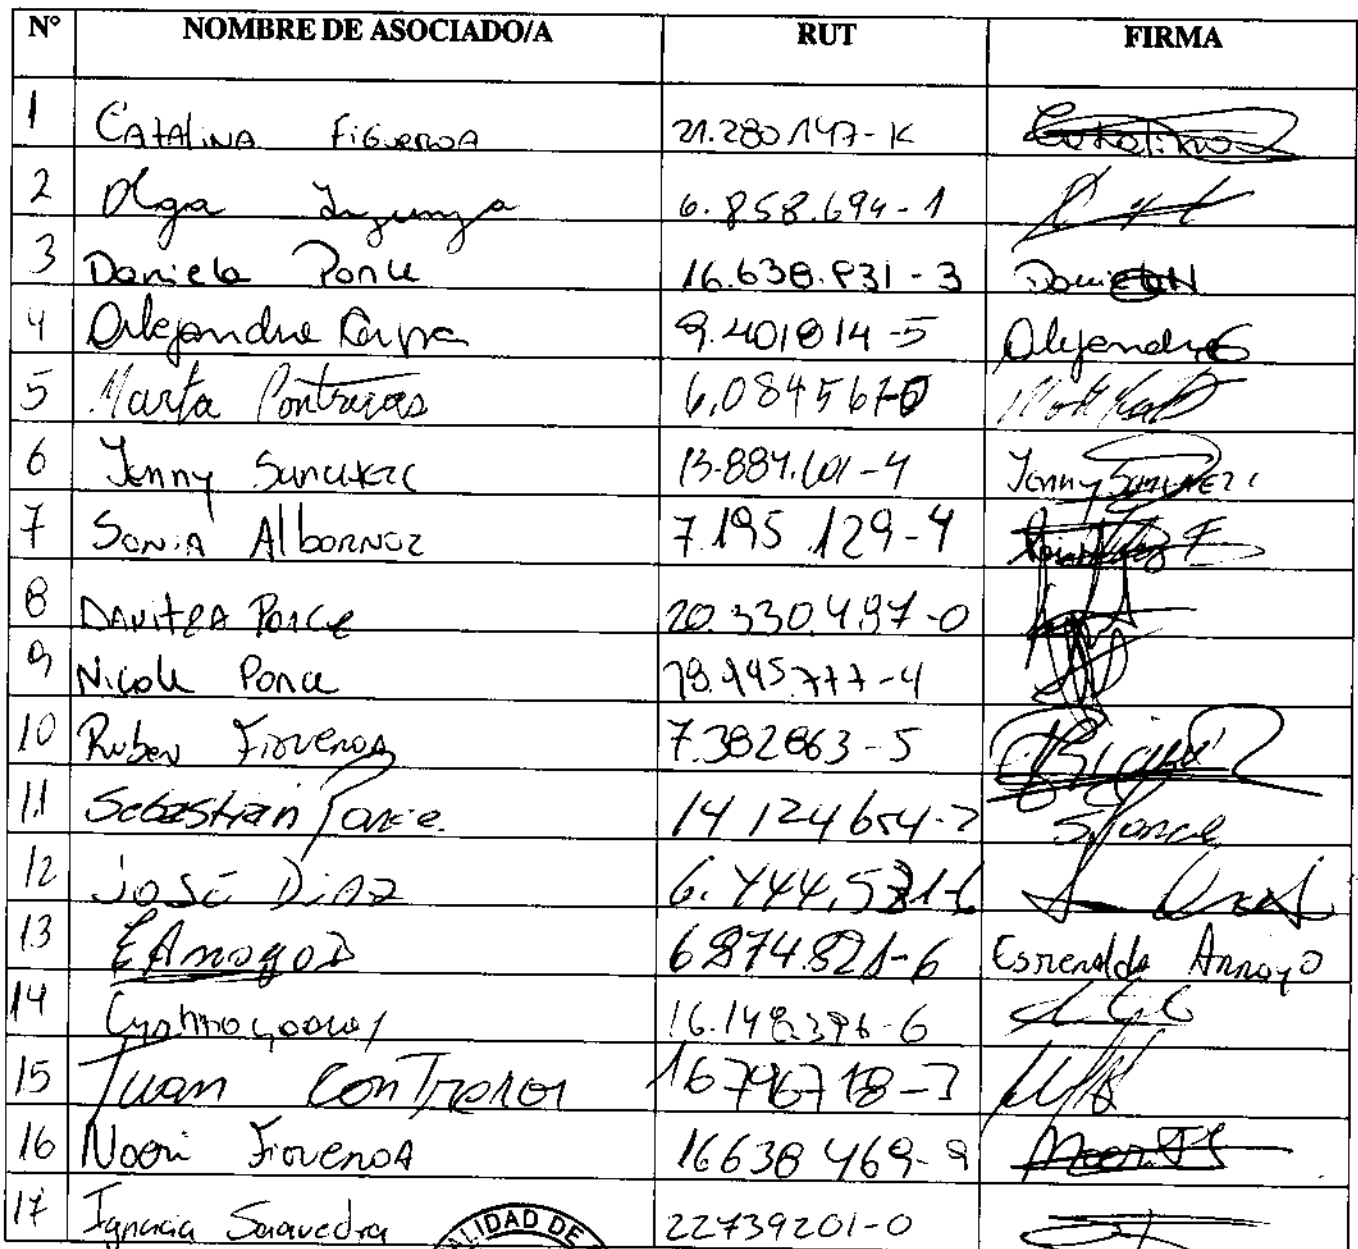 N° NOMBRE DE ASOCIADO/A RUT FIRMA
1 CATALINA FIGUEROA 21.280.147-K Catalina
2 Olga Inzunza 6.858.694-1
3 Daniela Ponce 16.638.831-3 Daniela
4 Alejandra 9.401814-5 Alejandra
5 Marta Contreras 6.084567-0
6 Jenny Sanchez 13.884.101-4 Jenny Sanchez
7 SONIA AlbORNOZ 7.195.129-4
8 Ponce 20.330.497-0
9 Nicole Ponce 18.445.777-4
10 Ruben Figueroa 7.382863-5
11 Sebastian Ponce. 14124654-2 S Ponce
12 JOSÉ DiAZ 6.444.521-6
13 EArroyo D 6874.821-6 Esmeralda Arroyo
14 16.148.396-6
15 Juan Contreras 16796718-3
16 Noemi Figueroa 16638469-9 Noemi
17 Ignacia Saavedra 22739201-0
ALIDAD DE